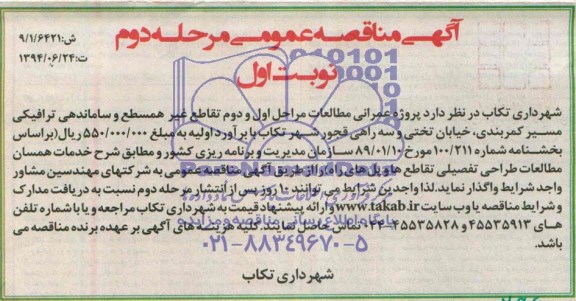 آگهی مناقصه عمومی مرحله دوم
نوبت اول
ش: ۹/۱/۶۴۲۱
ت: ۱۳۹۴/۰۶/۲۴
شهرداری تکاب در نظر دارد پروژه عمرانی مطالعات مراحل اول و دوم تقاطع غیر همسطح و ساماندهی ترافیکی
مسیر کمربندی، خیابان تختی و سه راهی قجور شهر تکاب با برآورد اولیه به مبلغ ۵۵۰/۰۰۰/۰۰۰ ریال (براساس
بخشنامه شماره ۱۰۰/۲۱۱ مورخ ۸۹/۰۱/۱۰ سازمان مدیریت و برنامه ریزی کشور و مطابق شرح خدمات همسان
مطالعات طراحی تفصیلی تقاطع ها و پل های راه) را از طریق آگهی مناقصه عمومی به شرکتهای مهندسین مشاور
واجد شرایط واگذار نماید. لذا واجدین شرایط می توانند ۱۰ روز پس از انتشار مرحله دوم نسبت به دریافت مدارک
و شرایط مناقصه با وب سایت www.takab.ir و ارائه پیشنهاد قیمت به شهرداری تکاب مراجعه و یا با شماره تلفن
های ۴۵۵۳۵۹۱۳ و ۴۵۵۳۵۸۲۸-۰۴۴ تماس حاصل نمایند. کلیه هزینه های آگهی بر عهده برنده مناقصه می
باشد.
شهرداری تکاب
پایگاه اطلاع رسانی مناقصه و مزایده
۰۲۱-۸۸۳۴۹۶۷۰-۵